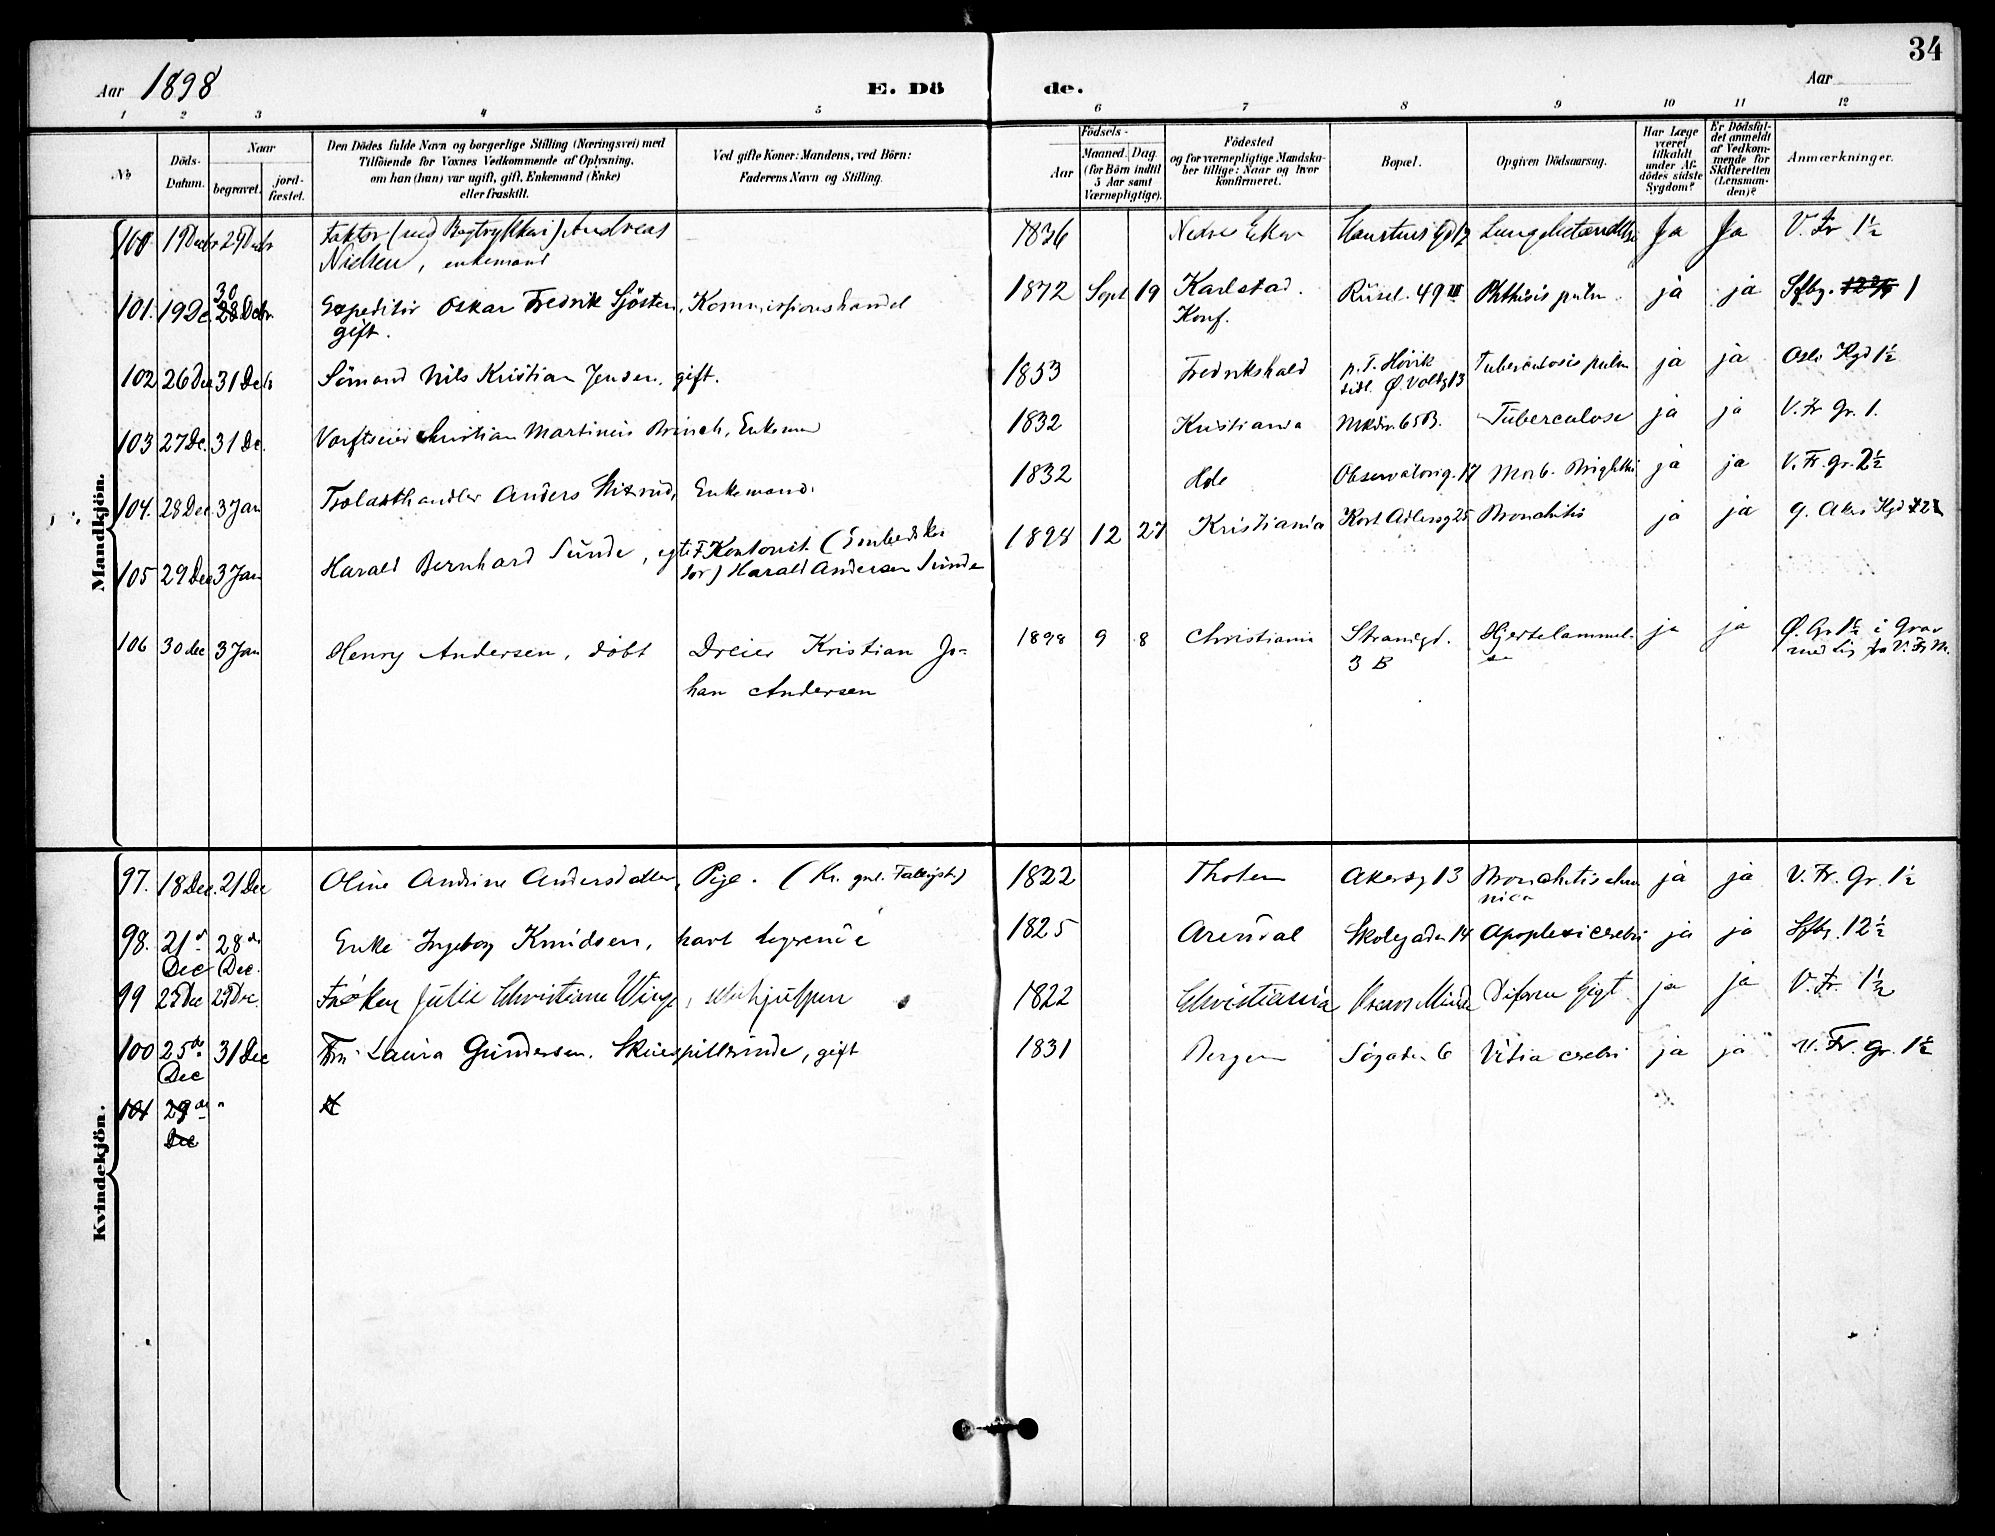 34
Aar 1898
E. Dö de.
Aar
1 2 3 4 5 6 7 8 9 10 11 12
No
Döds-Datum.
Naar
begravet.
jord-fæstet.
Den Dödes fulde Navn og borgerlige Stilling (Næringsvei) med
Tilföiende for Voxnes Vedkommende af Oplysning,
om han (hun) var ugift, gift, Enkemand (Enke)
eller fraskilt.
Ved gifte Koner: Mandens, ved Börn:
Faderens Navn og Stilling.
Födsels-
Aar
Maaned. Dag.
(for Börn indtil
5 Aar samt
Værnepligtige).
Födested
og for værnepligtige Mandska-
ber tillige: Naar og hvor
konfirmeret.
Bopæl.
Opgiven Dödsaarsag.
Har Læge
været
tilkaldt
under Af-
dödes sidste
Sygdom?
Er Dödsfal-
det anmeldt
af Vedkom-
mende for
Skifteretten
(Lensman-
den)?
Anmærkninger.
Mandkjön.
100 19 Decbr 29 Decbr Faktor (ved Bogtrykkeri) Andreas
Nielsen, enkemand
1836 Nedre Eker Lungebetændelse Ja Ja V. Fr 1½
101. 19 De. 30 28 Decbr. Expeditör Oskar Fredrik Sjösten, Kommissionshandel
gift.
1872 Sept 19 Karlstad. Konf. Rüsel. 49 III Phthisis pulm. ja ja Sfbg. 1
102 26 Dec 31 Decbr Sömand Nils Kristian Jensen, gift.
1853 Fredrikshald p.T. Hövik Tuberculosis pulm ja ja Oslo Kgd 1½
103 27 De. 31 De. Værftseier Christian Martinius Brinch, Enkemand
1832 Kristiania Mkdv. 65 B. Tuberculose ja ja V. Fr Gr. 1.
104. 28 Dec. 3 Jan Trælasthandler Anders Hizrud, Enkemand.
1832 Hole Observatorig. 17 Morb. Brightii ja ja V. Fr. gr. 2½
105 29 Dec 3 Jan Harald Bernhard Sunde, egte F. Kontorist (Embedskon
tor) Harald Andersen Sunde
1898 12 27 Kristiania Kort Adlersg 25 Bronchitis ja ja G. Akers Kgd
106 30 dec 3 Jan Henry Andersen, döbt Dreier Kristian Jo-
han Andersen
1898 9 8 Christiania Strandgd.
3 B Hjertelammel-
se ja ja Ø. Gr 1½ i Grav
med Lig fra V. Fr M.
Kvindekjön.
97. 18 Dec. 21 Dec Oline Andrine Andersdatter, Pige. (Kr. gml. Fattigst.)
1822 Thoten Akersg 13 Bronchitis chro
nica ja ja V. Fr. Gr. 1½
98. 21 d. Dec 28 de Dec. Enke Ingeborg Knudsen, havt legrende
1825 Arendal Skolegaden 14 Apoplexi cerebri ja ja Sfbg. 12½
99 25 Dec 29 Dec. Fröken Julie Christiane Winge, selvhjulpen
1822 Christiania Oscars Minde Diform Gigt ja ja V. Fr. 1½
100 25 de Dec 31 Dec Fru Laura Gundersen. Skuespillerinde, gift
1831 Bergen Sögaden 6 Vitia cerebri ja ja V. Fr. gr. 1½
101 29 de "
Dec